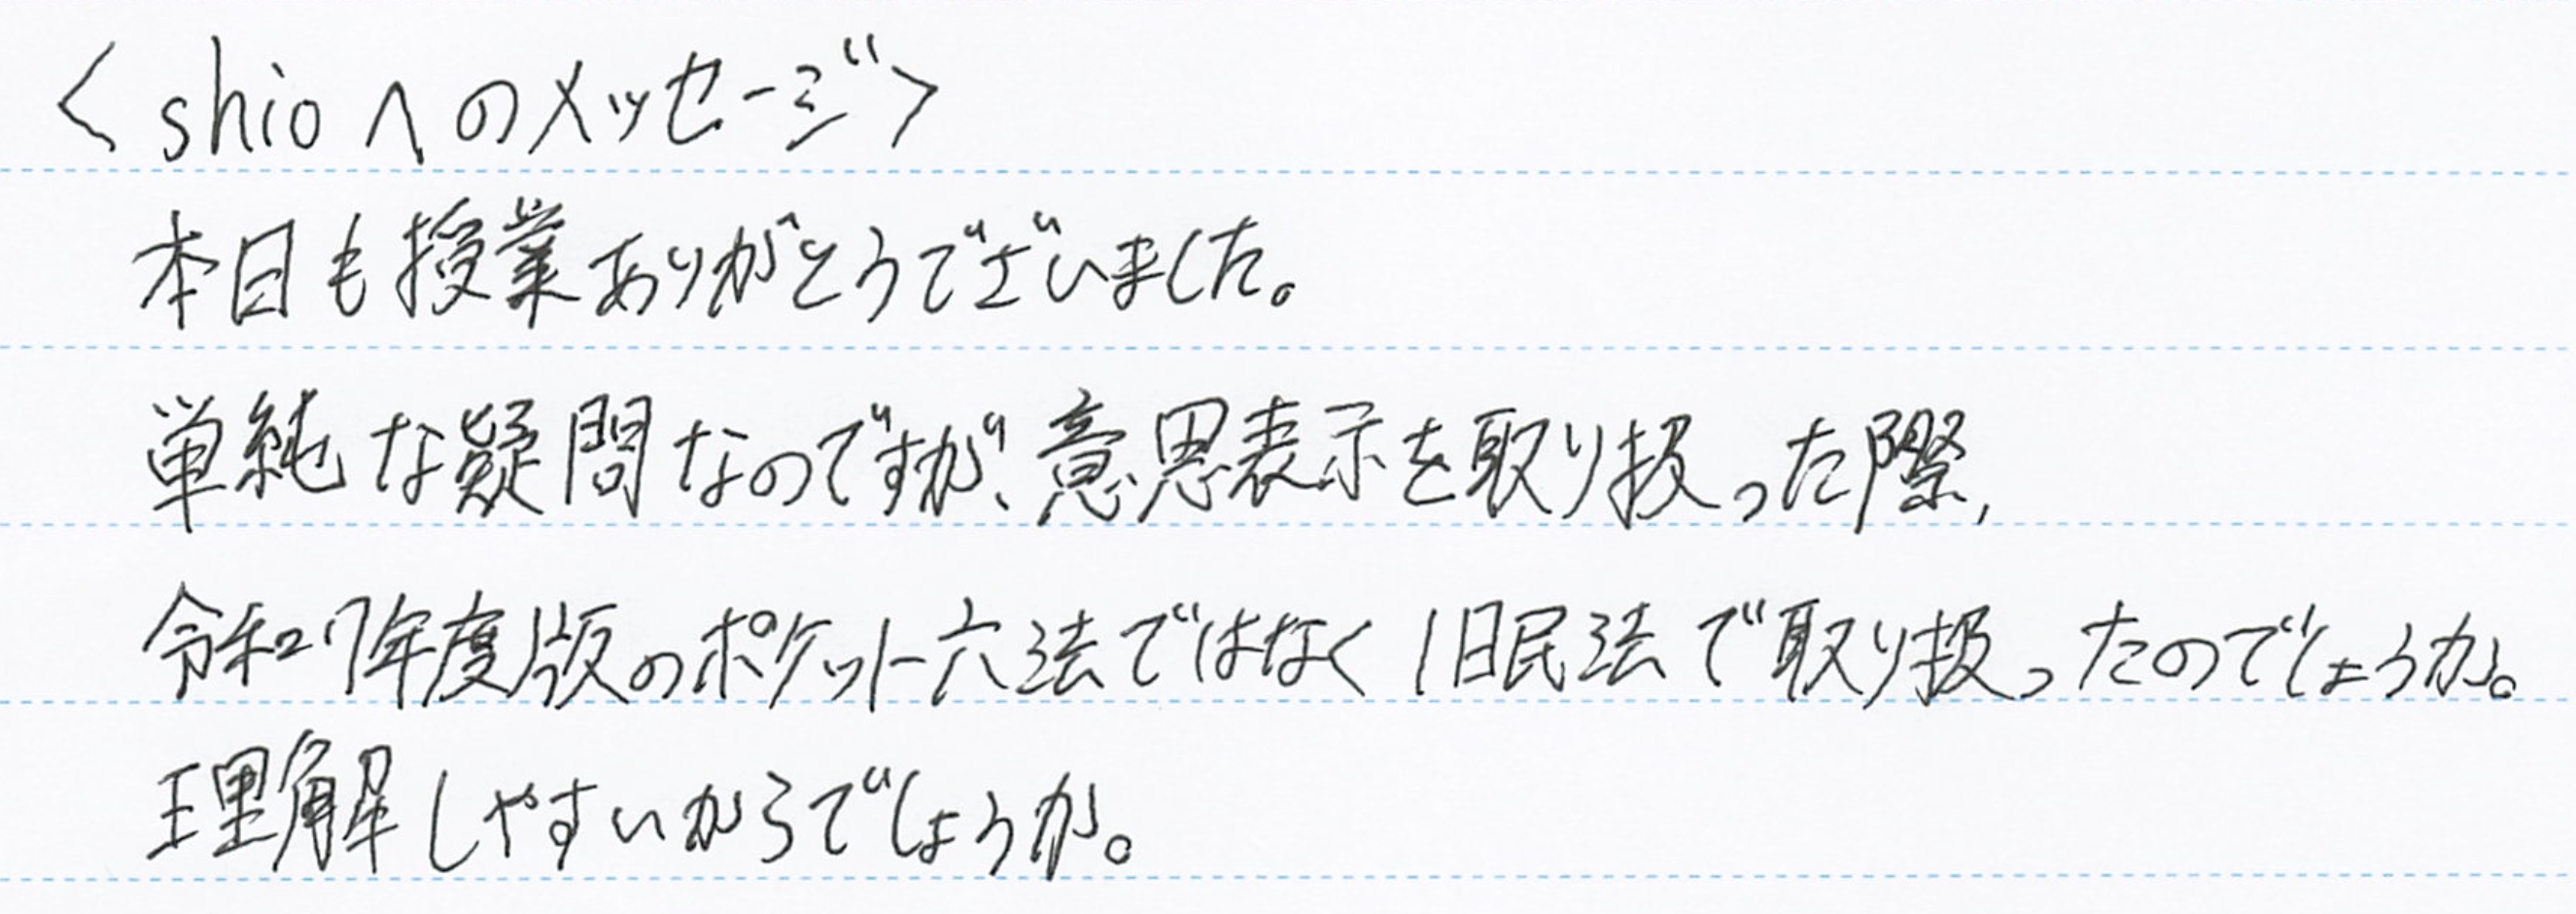 <shioへのメッセージ>
本日も授業ありがとうでざいました。
単純な疑問なのですが、意思表示を取り扱った際,
令和7年度版のポケット六法ではなく旧民法で取り扱ったのでしょうか。
理解しやすいからでしょうか。